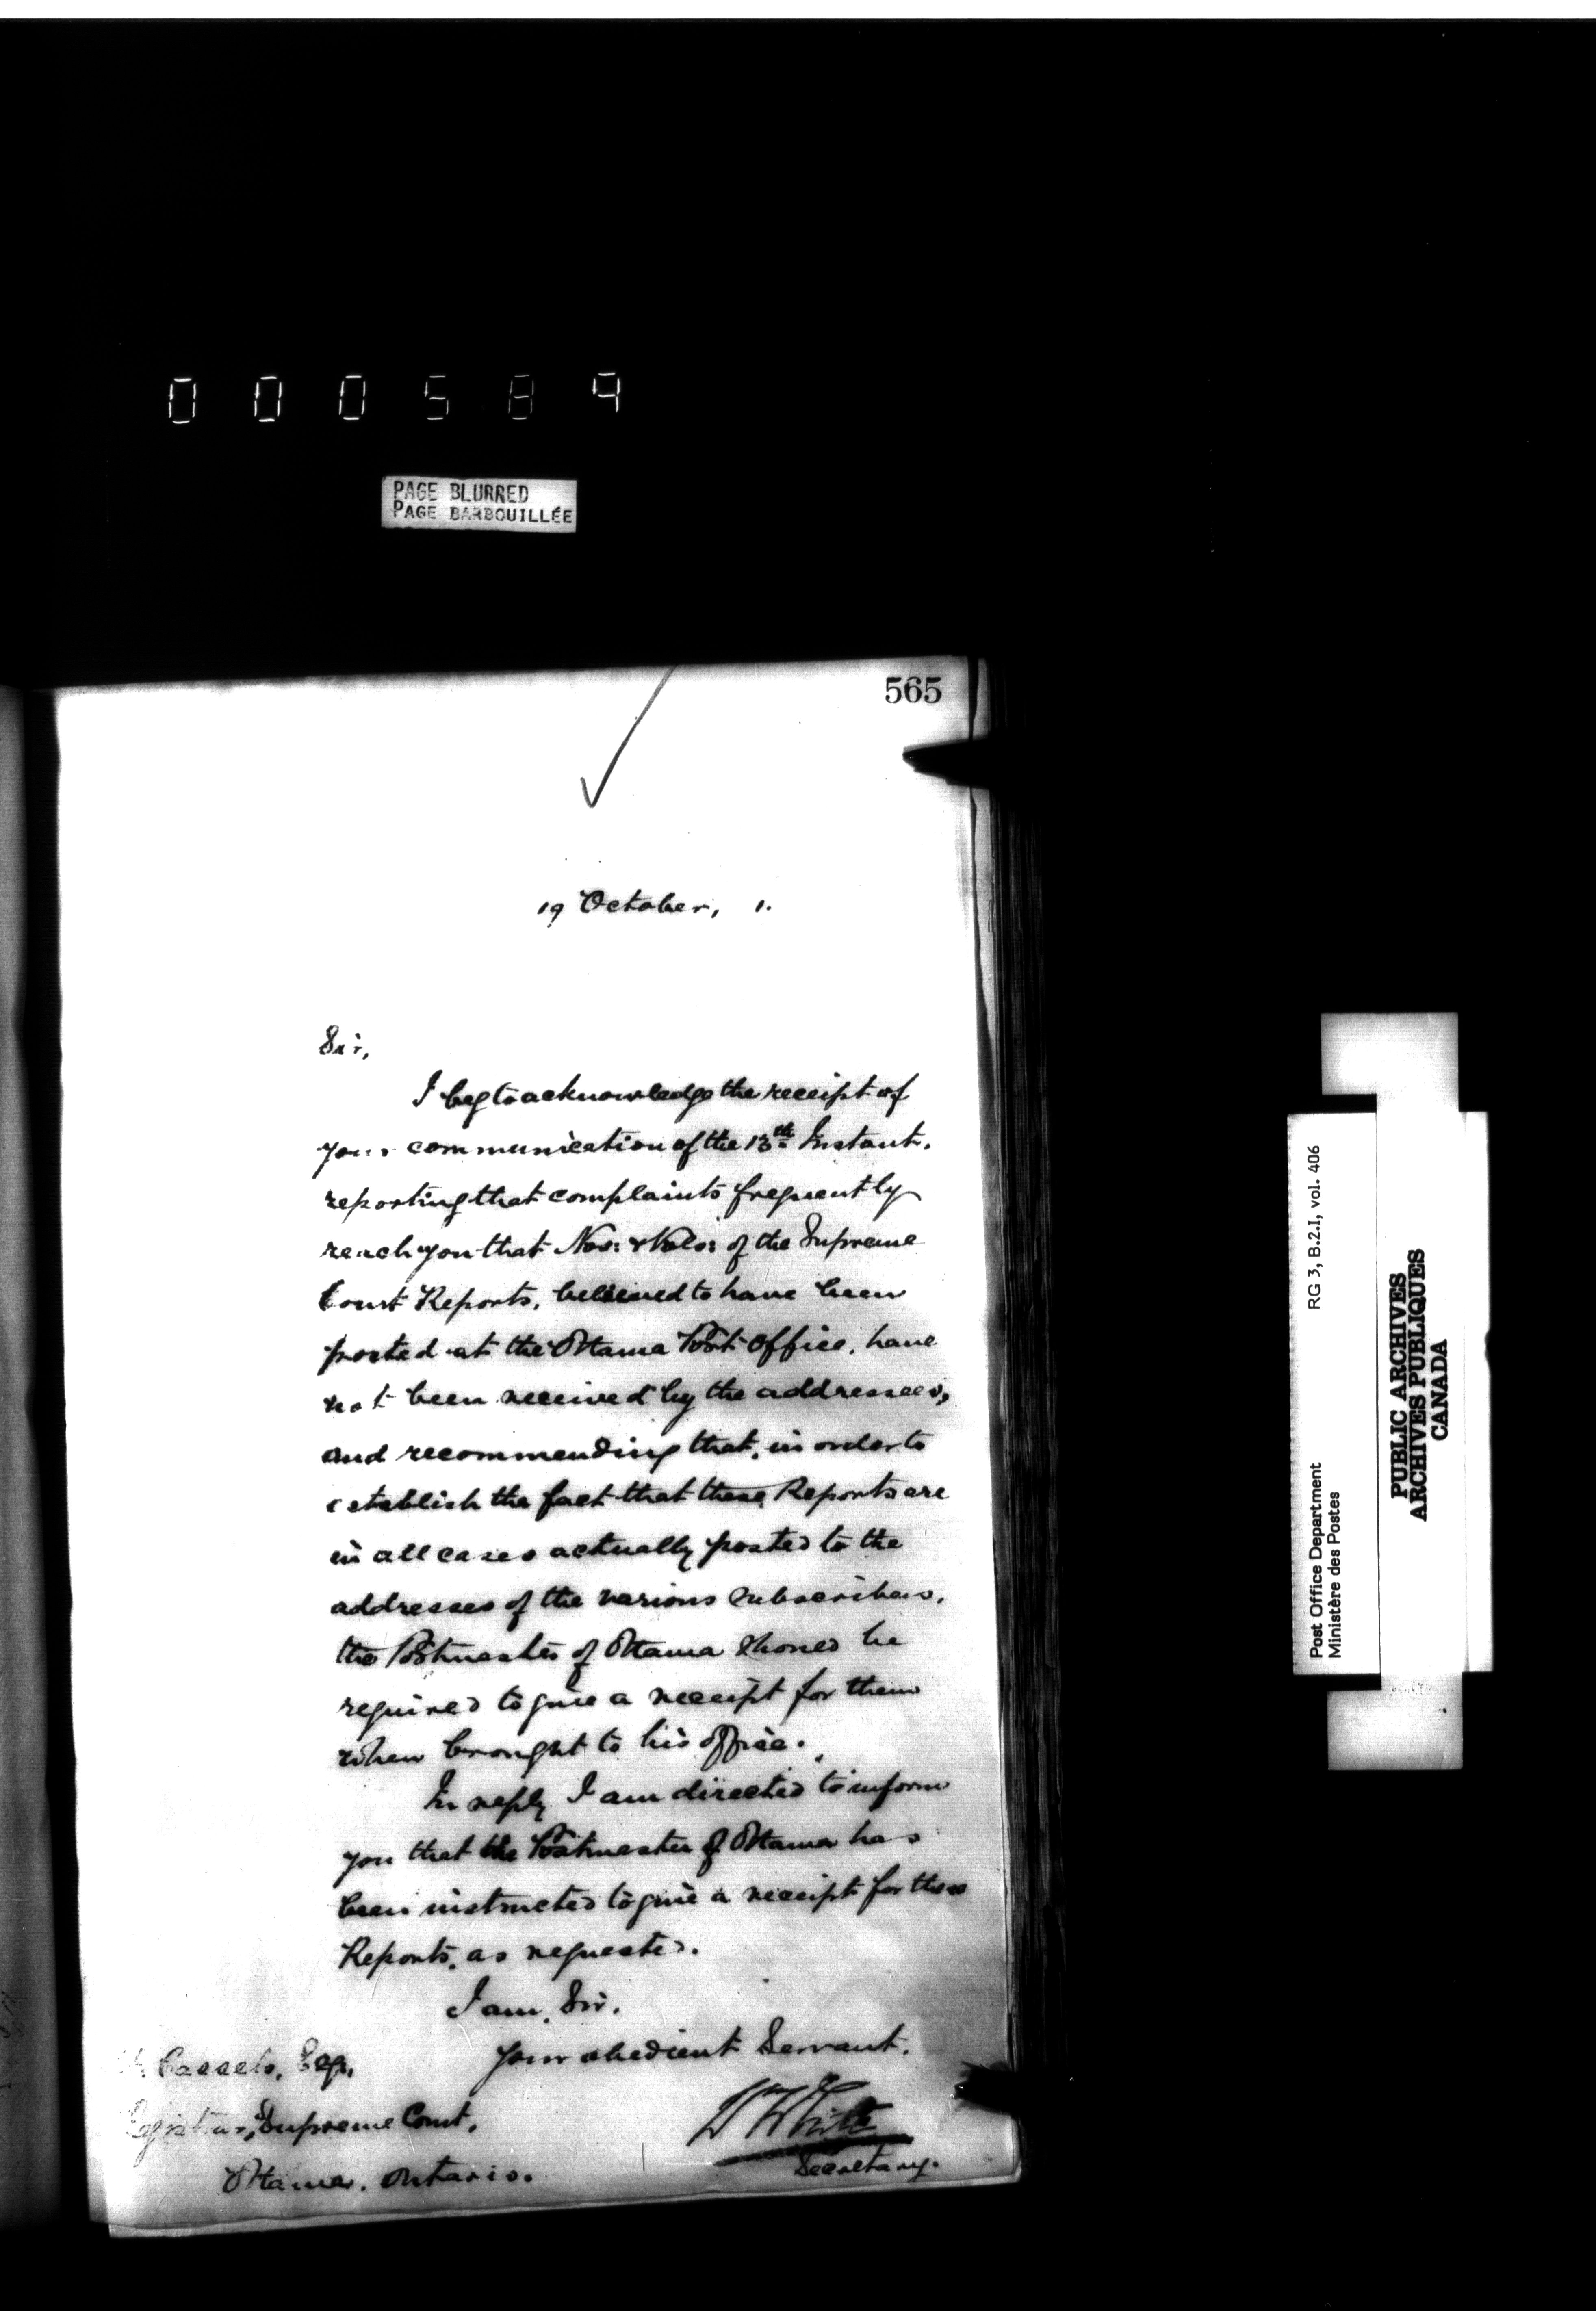 000584
PAGE BLURRED
PAGE BARBOUILLÉE
565
19 October, 1.
Sir,
I beg to acknowledge the receipt of
your communication of the 13th Instant,
reporting that complaints frequently
reach you that Nos: & Vols: of the Supreme
Court Reports, believed to have been
posted at the Ottawa Post Office, have
not been received by the addressees,
and recommending that, in order to
establish the fact that these Reports are
in all cases actually posted to the
addresses of the various subscribers,
the Postmaster of Ottawa should be
required to give a receipt for them
when brought to his office.
In reply I am directed to inform
you that the Postmaster of Ottawa has
been instructed to give a receipt for these
Reports, as requested.
I am, Sir,
Your obedient Servant,
Cassels, Esq,
Registrar, Supreme Court,
Ottawa, Ontario.
W White
Secretary.
Post Office Department RG 3, B.2.I, vol. 406
Ministère des Postes
PUBLIC ARCHIVES
ARCHIVES PUBLIQUES
CANADA